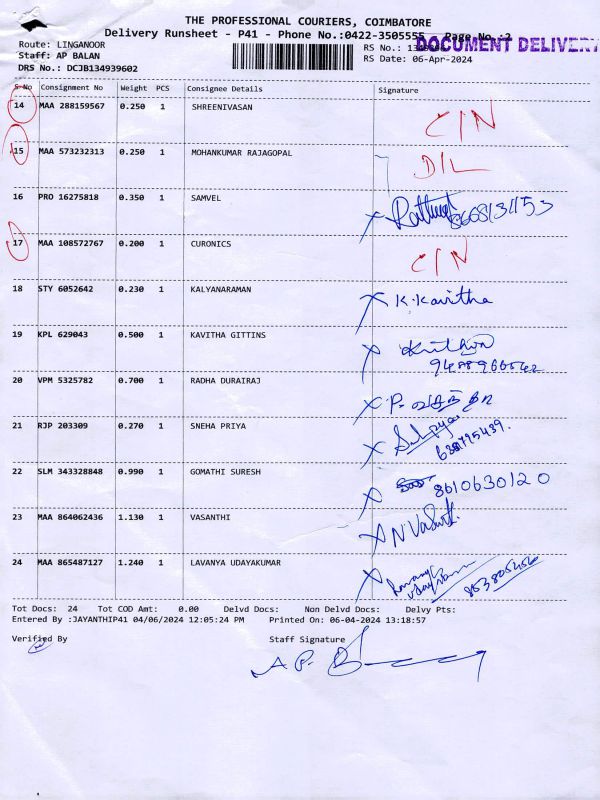 THE PROFESSIONAL COURIERS, COIMBATORE
Delivery Runsheet - P41 - Phone No.:0422-3505555 Page No.:2
DOCUMENT DELIVERY
Route: LINGANOOR
Staff: AP BALAN
DRS No.: DCJB134939602
RS Date: 06-Apr-2024
S No Consignment No Weight PCS Consignee Details Signature
14 MAA 288159567 0.250 1 SHREENIVASAN C/N
15 MAA 573232313 0.250 1 MOHANKUMAR RAJAGOPAL D/L
16 PRO 16275818 0.350 1 SAMVEL
17 MAA 108572767 0.200 1 CURONICS C/N
18 STY 6052642 0.230 1 KALYANARAMAN X K.Kavitha
19 KPL 629043 0.500 1 KAVITHA GITTINS X
20 VPM 5325782 0.700 1 RADHA DURAIRAJ X P.
21 RJP 203309 0.270 1 SNEHA PRIYA X
22 SLM 343328848 0.990 1 GOMATHI SURESH X 8610630120
23 MAA 864062436 1.130 1 VASANTHI X N.Vasanth.
24 MAA 865487127 1.240 1 LAVANYA UDAYAKUMAR X Lavanya
Tot Docs: 24 Tot COD Amt: 0.00 Delvd Docs: Non Delvd Docs: Delvy Pts:
Entered By :JAYANTHIP41 04/06/2024 12:05:24 PM Printed On: 06-04-2024 13:18:57
Verified By Staff Signature
A.P.